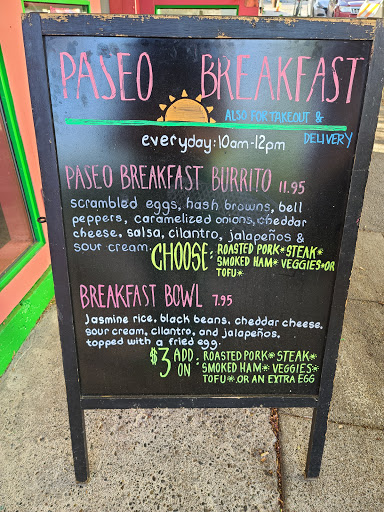 PASEO BREAKFAST
ALSO FOR TAKEOUT &
DELIVERY
everyday: 10am-12pm
PASEO BREAKFAST BURRITO 11.95
scrambled eggs, hash browns, bell
peppers, caramelized onions, cheddar
cheese, salsa, cilantro, jalapeños &
sour cream.
CHOOSE: ROASTED PORK* STEAK*
SMOKED HAM* VEGGIES* OR
TOFU*
BREAKFAST BOWL 7.95
Jasmine rice, black beans, cheddar cheese,
sour cream, cilantro, and jalapeños.
topped with a fried egg.
$3 ADD ON: ROASTED PORK* STEAK*
SMOKED HAM* VEGGIES*
TOFU*, OR AN EXTRA EGG